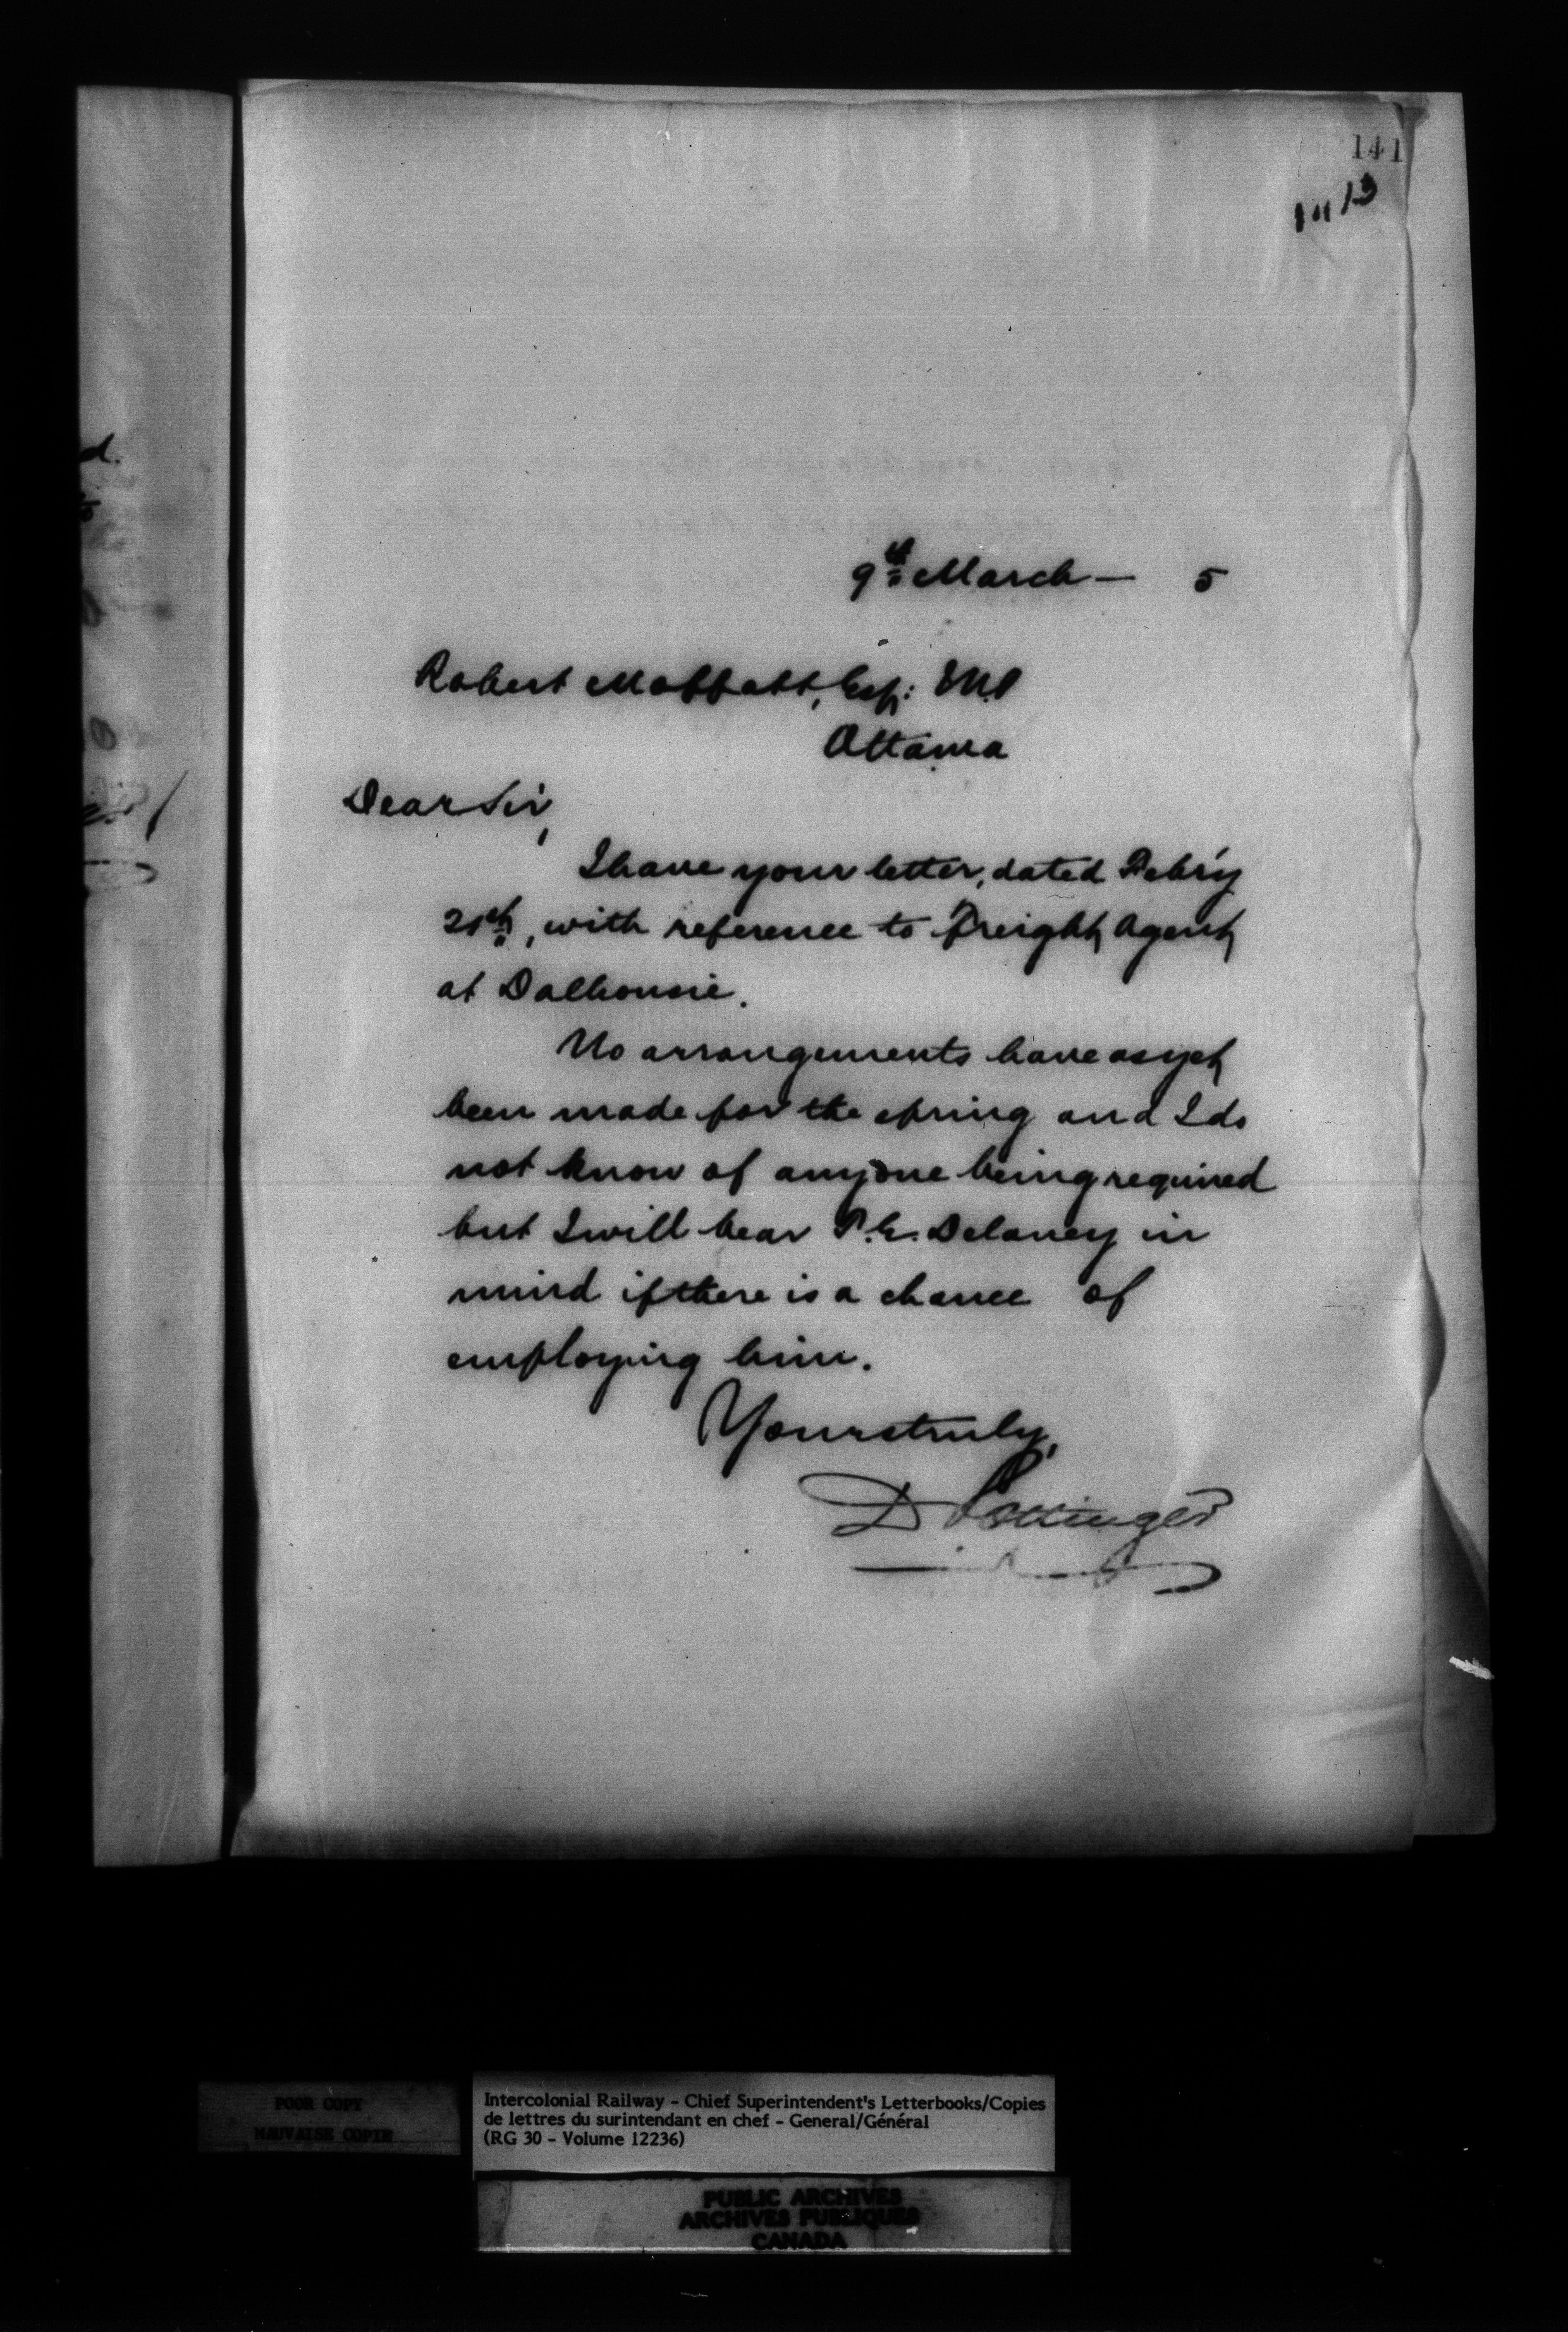 141
9th March — 5
Robert Moffatt, Esq: M.P
Ottawa
Dear Sir,
I have your letter, dated Feb'ry
21st, with reference to Freight Agent
at Dalhousie.
No arrangements have as yet
been made for the spring and I do
not know of anyone being required
but I will bear P.E. Delaney in
mind if there is a chance of
employing him.
Yours truly,
D Pottinger
POOR COPY
MAUVAISE COPIE
Intercolonial Railway - Chief Superintendent's Letterbooks/Copies
de lettres du surintendant en chef - General/Général
(RG 30 - Volume 12236)
PUBLIC ARCHIVES
ARCHIVES PUBLIQUES
CANADA